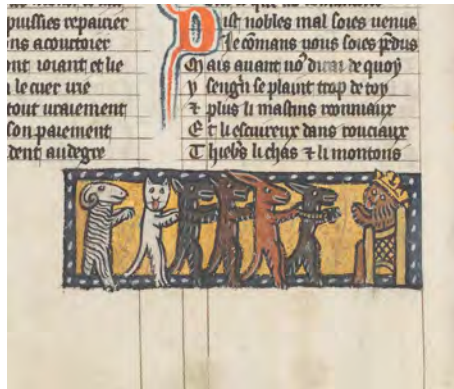 puissies repairier
ns acourtoier
ont ioiant et lie
a le cuer
tout uraiement
son paiement
dent au degre
Dist nobles mal soies uenus
comans uous soies pdus
Mais auant dirai de quoy
y sengñ se plaint trop de toy
⁊ plus li mastins rouniaux
Et li escureux dans rouciaux
Thiebs li chas ⁊ li montons